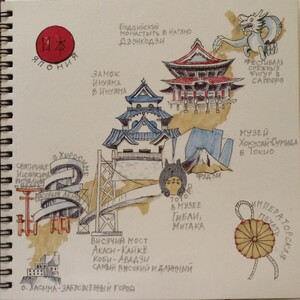 日本
ЯПОНИЯ
БУДДИЙСКИЙ
МОНАСТЫРЬ В НАГАНО
ДЗЭНКОДЗИ
ФЕСТИВАЛЬ
СНЕЖНЫХ
ФИГУР В
САППОРО
ЗАМОК
ИНУЯМА
В ИНУЯМА
МУЗЕЙ
ХОКУСАЙ-СУМИДА
В ТОКИО
О. ХИРОСИМА
СВЯТИЛИЩЕ
ФУДЗИ
ТОТОРО
В МУЗЕЕ
ГИБЛИ,
МИТАКА
ИМПЕРАТОРСКАЯ
ПЕЧАТЬ
ВИСЯЧИЙ МОСТ
АКАСИ-КАЙКЁ
КОБИ-АВАДЗИ
САМЫЙ ВЫСОКИЙ И ДЛИННЫЙ
О. ХАСИМА-ЗАБРОШЕННЫЙ ГОРОД